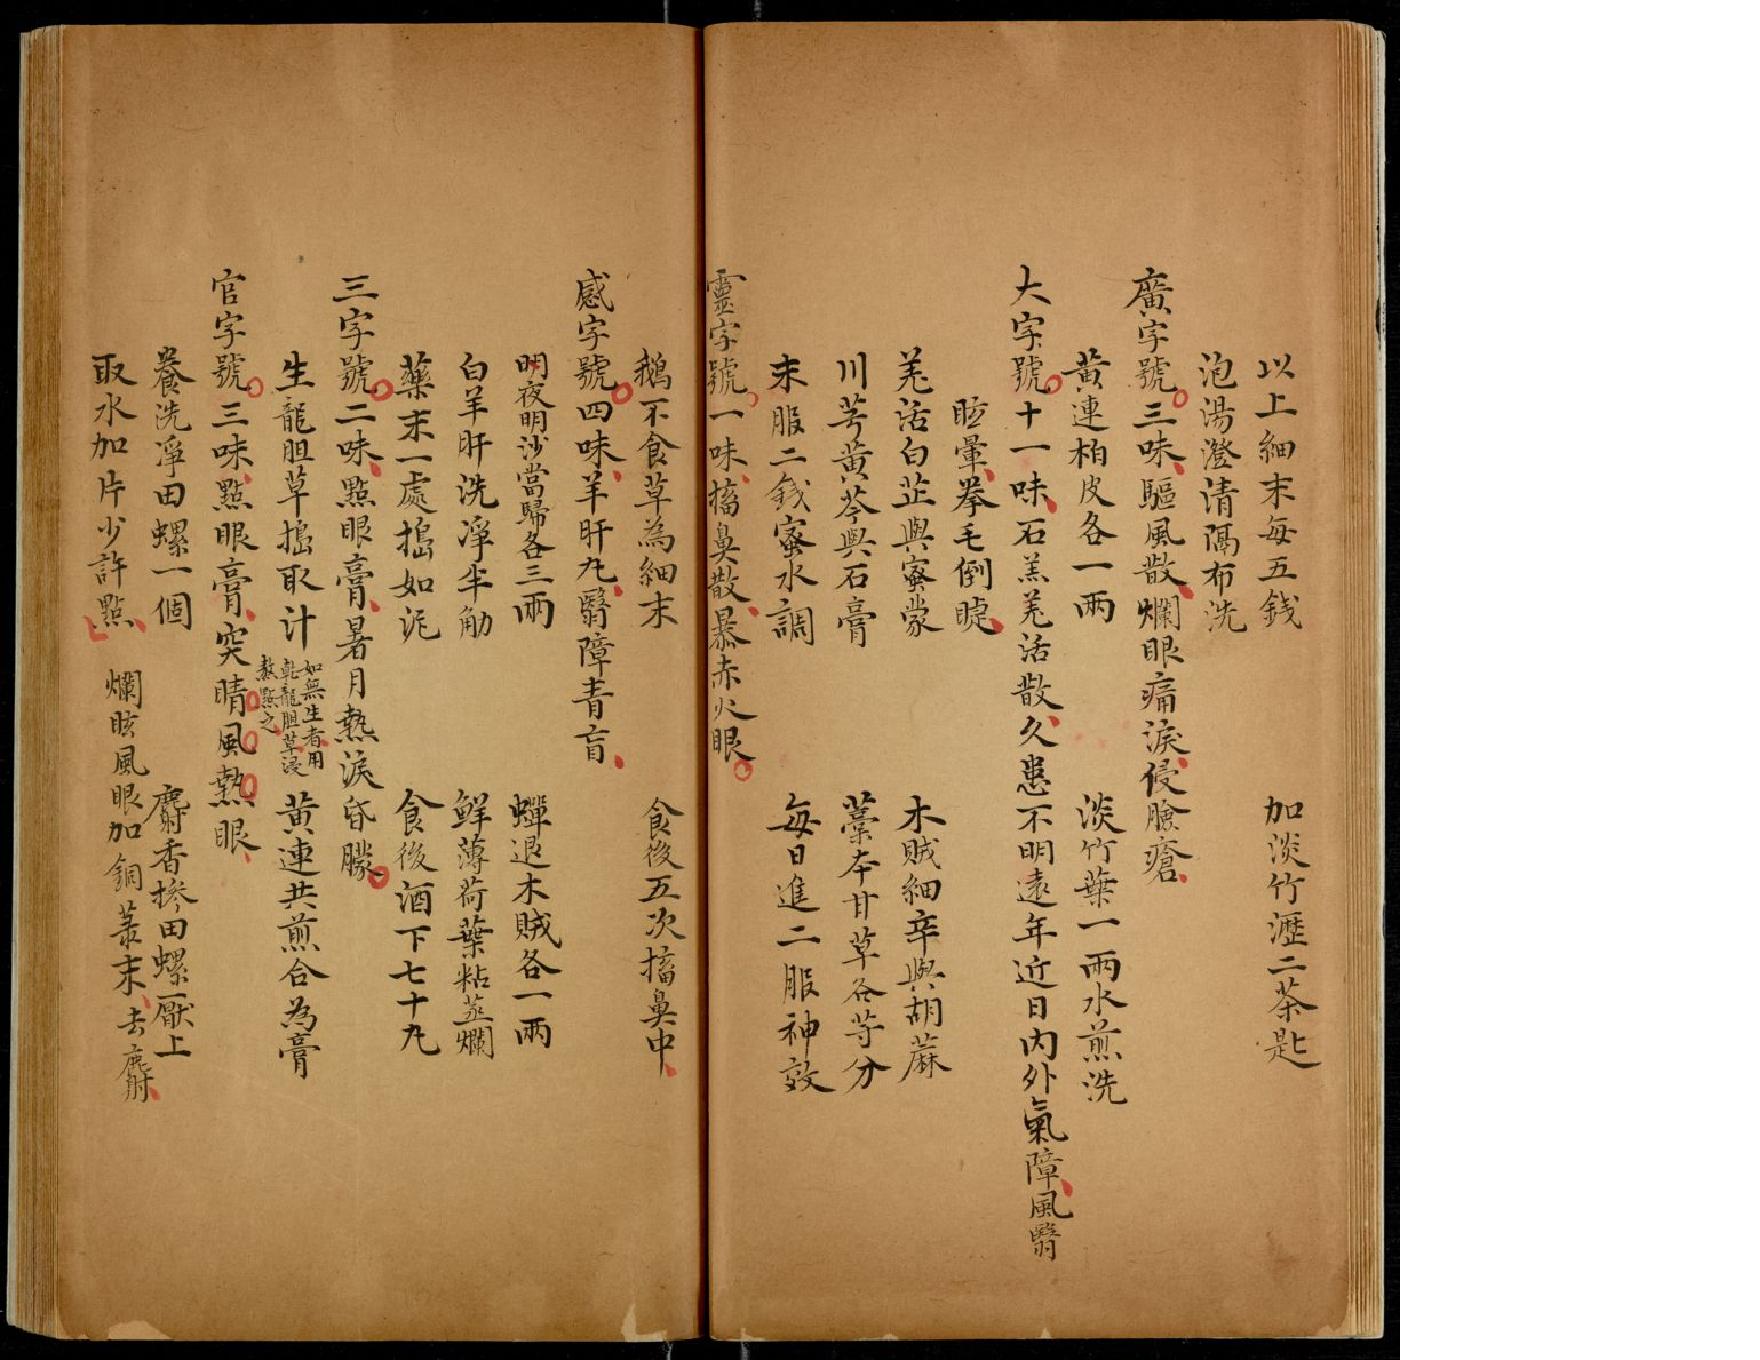 以上細末每五錢　加淡竹瀝二茶匙
泡湯澄清隔布洗
廣字號三味驅風散爛眼痛淚侵臉瘡
黃連柏皮各一兩　淡竹葉一兩水煎洗
大字號十一味石羔羌活散久患不明遠年近日內外氣障風翳
眩暈拳毛倒睫
羌活白芷與蜜蒙　木賊細辛與胡蔴
川芎黃芩與石膏　藁本甘草各等分
末服二錢蜜水調　每日進二服神效
靈字號一味搐鼻散暴赤火眼
鵝不食草為細末　食後五次搐鼻中
感字號四味羊肝丸翳障青盲
明夜明沙當歸各三兩　蟬退木賊各一兩
白羊肝洗淨半觔　鮮薄荷葉粘蒸爛
藥末一處搗如泥　食後酒下七十丸
三字號二味點眼膏暑月熱淚昏朦
生龍胆草搗取汁　如無生者用乾龍胆草浸熬點之　黃連共煎合為膏
官字號三味點眼膏突睛風熱眼
養洗淨田螺一個　麝香摻田螺厴上
取水加片少許點　爛眩風眼加銅菉末去麝